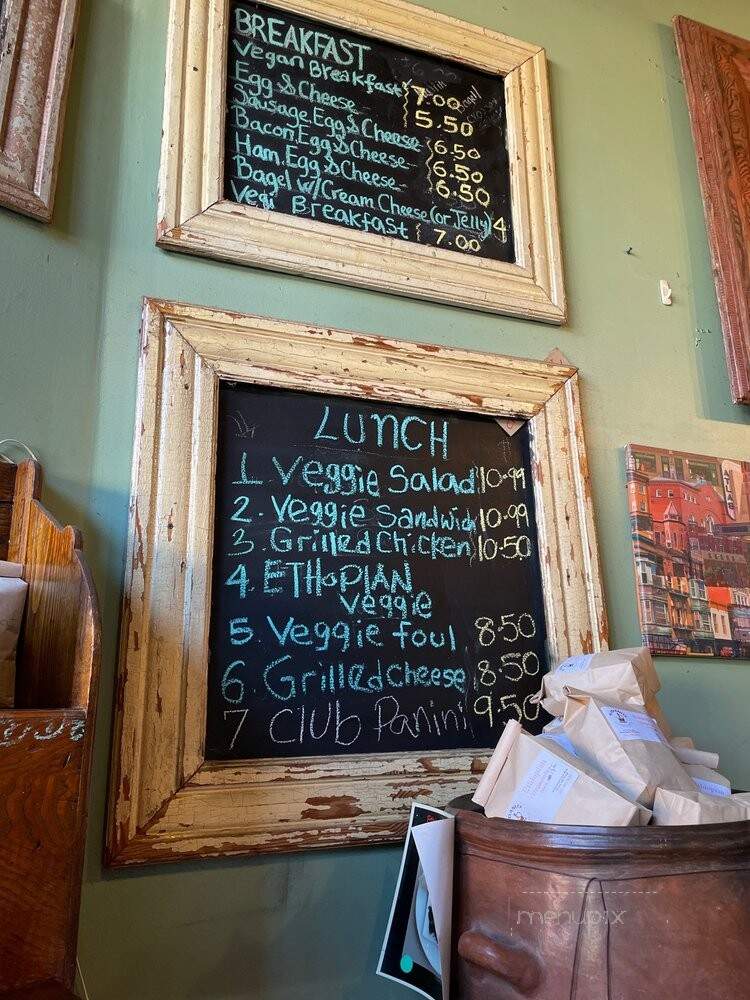 BREAKFAST
Vegan Breakfast { 7.00
Egg & Cheese 5.50
Sausage, Egg & Cheese { 6.50
Bacon, Egg & Cheese 6.50
Ham, Egg & Cheese 6.50
Bagel w/Cream Cheese (or Jelly) 4
Vegi Breakfast { 7.00
LUNCH
1. Veggie Salad 10.99
2. Veggie Sandwich 10.99
3. Grilled Chicken 10.50
4. ETHoPIAN
Veggie
5. Veggie foul 8.50
6. Grilled cheese 8.50
7 Club Panini 9.50
menupix